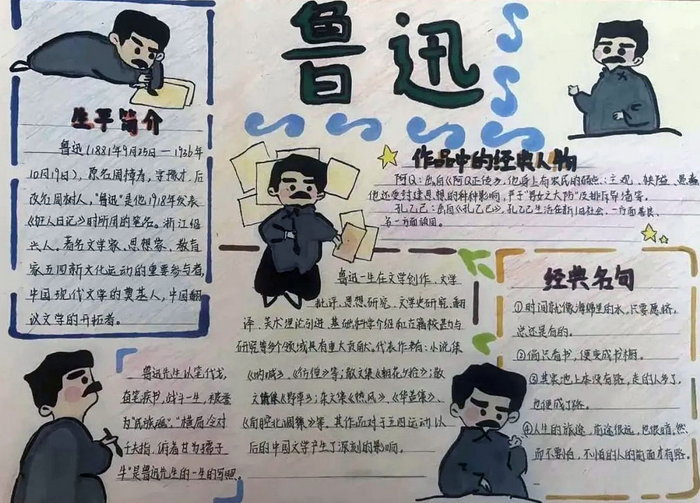 鲁迅
生平简介
鲁迅(1881年9月25日—1936年
10月19日),原名周樟寿,字豫才,后
改名周树人,"鲁迅"是他1918年发表
《狂人日记》时所用的笔名。浙江绍
兴人。著名文学家、思想家、教育
家五四新文化运动的重要参与者,
中国现代文学的奠基人,中国翻
议文学的开拓者。
作品中的经典人物
阿Q:出自《阿Q正传》,他身上有农民的弱点:主观、狭隘、
他还受封建思想的种种影响,严于"男女之大防"及排斥异端等。
孔乙己:出自《孔乙己》,孔乙己生活在新旧社会,一方面善良、
另一方面
鲁迅一生在文学创作、文学
批评、思想研究、文学史研究、翻
译、美术理论引进、基础科学介绍和古籍校勘与
研究等多个领域具有重大贡献。代表作有:小说集
《呐喊》、《彷徨》等;散文集《朝花夕拾》;散
文集《野草》;杂文集《热风》、《华盖集》、
《南腔北调集》等,其作品对于五四运动以
后的中国文学产生了深刻的影响。
鲁迅先生以笔代戈,
奋笔疾书,战斗一生,被誉
为"民族魂"。"横眉冷对
千夫指,俯首甘为孺子
牛"是鲁迅先生的一生的写照。
经典名句
①时间就像海绵里的水,只要愿挤,
总还是有的。
②倘只看书,便变成书橱。
③其实地上本没有路,走的人多了,
也便成了路。
④人生的旅途,前途很远,也很暗,然
而不要怕,不怕的人的前面才有路。